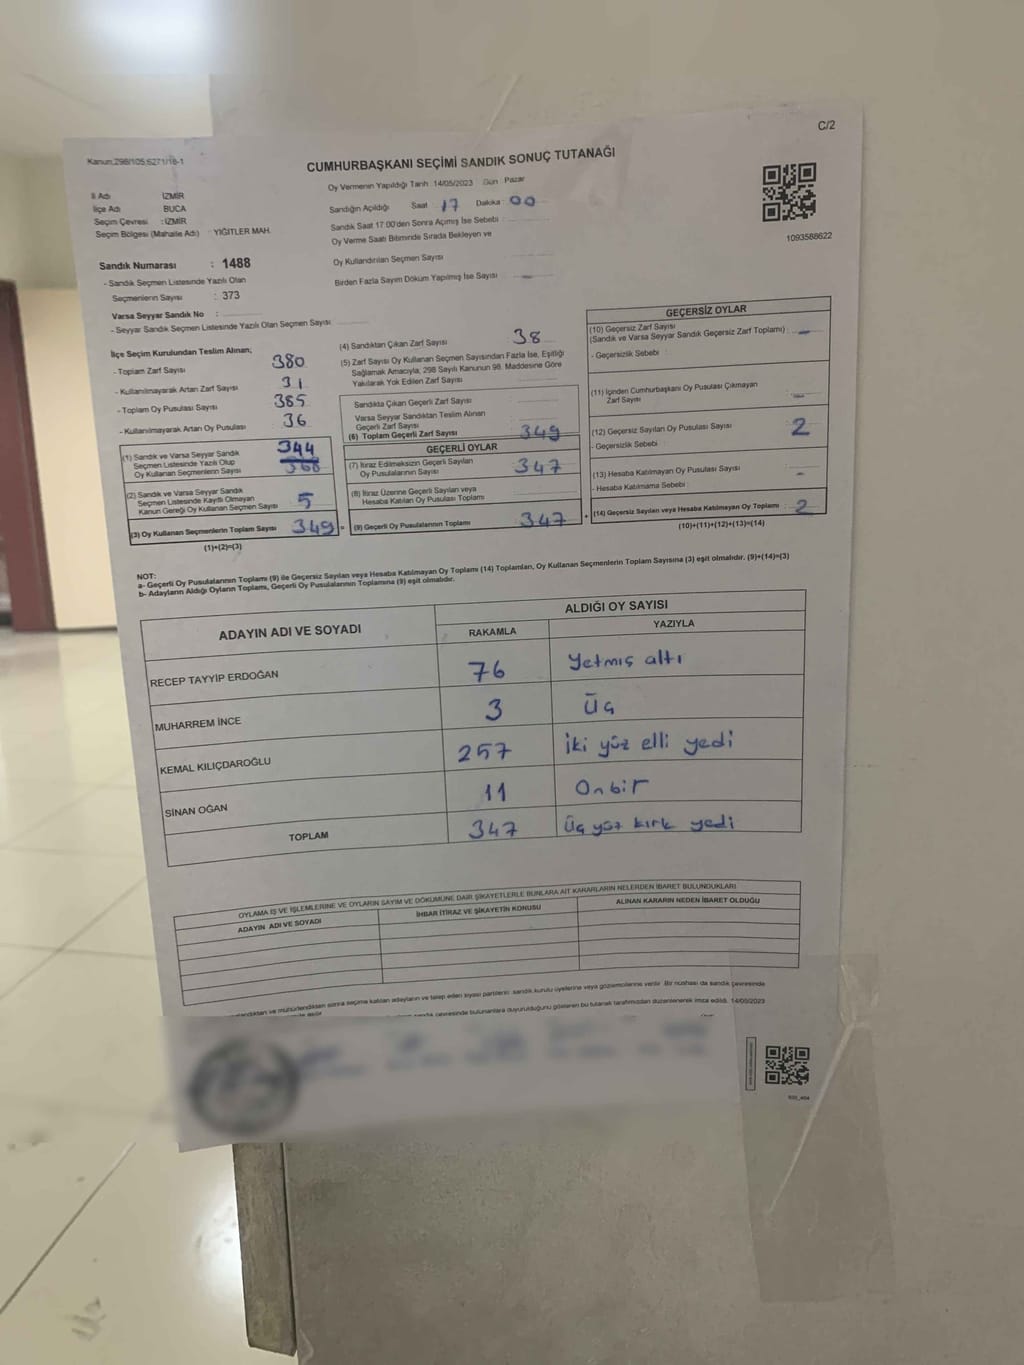 C/2
Kanun:298/105,6271/18-1
CUMHURBAŞKANI SEÇİMİ SANDIK SONUÇ TUTANAĞI
İl Adı İZMİR
İlçe Adı BUCA
Seçim Çevresi : İZMİR
Seçim Bölgesi (Mahalle Adı) : YİĞİTLER MAH.
Oy Vermenin Yapıldığı Tarih 14/05/2023 Gün Pazar
Sandığın Açıldığı Saat 17 Dakika 00
Sandık Saat 17:00'den Sonra Açmış İse Sebebi
Oy Verme Saati Bitiminde Sırada Bekleyen ve
Oy Kullandırılan Seçmen Sayısı
Birden Fazla Sayım Döküm Yapılmış İse Sayısı -
1093588622
Sandık Numarası : 1488
- Sandık Seçmen Listesinde Yazılı Olan
Seçmenlerin Sayısı : 373
Varsa Seyyar Sandık No :
- Seyyar Sandık Seçmen Listesinde Yazılı Olan Seçmen Sayısı
İlçe Seçim Kurulundan Teslim Alınan;
- Toplam Zarf Sayısı 380
- Kullanılmayarak Artan Zarf Sayısı 31
- Toplam Oy Pusulası Sayısı 385
- Kullanılmayarak Artan Oy Pusulası 36
(1) Sandık ve Varsa Seyyar Sandık
Seçmen Listesinde Yazılı Olup
Oy Kullanan Seçmenlerin Sayısı 344
368
(2) Sandık ve Varsa Seyyar Sandık
Seçmen Listesinde Kayıtlı Olmayan
Kanun Gereği Oy Kullanan Seçmen Sayısı 5
(3) Oy Kullanan Seçmenlerin Toplam Sayısı 349 =
(1)+(2)=(3)
(4) Sandıktan Çıkan Zarf Sayısı 38
(5) Zarf Sayısı Oy Kullanan Seçmen Sayısından Fazla İse, Eşitliği
Sağlamak Amacıyla; 298 Sayılı Kanunun 98. Maddesine Göre
Yakılarak Yok Edilen Zarf Sayısı
Sandıkta Çıkan Geçerli Zarf Sayısı
Varsa Seyyar Sandıktan Teslim Alınan
Geçerli Zarf Sayısı
(6) Toplam Geçerli Zarf Sayısı 349
GEÇERLİ OYLAR
(7) İtiraz Edilmeksizin Geçerli Sayılan
Oy Pusulalarının Sayısı 347
(8) İtiraz Üzerine Geçerli Sayılan veya
Hesaba Katılan Oy Pusulası Toplamı
(9) Geçerli Oy Pusulalarının Toplamı 347 +
GEÇERSİZ OYLAR
(10) Geçersiz Zarf Sayısı
(Sandık ve Varsa Seyyar Sandık Geçersiz Zarf Toplamı) : -
- Geçersizlik Sebebi :
(11) İçinden Cumhurbaşkanı Oy Pusulası Çıkmayan
Zarf Sayısı -
(12) Geçersiz Sayılan Oy Pusulası Sayısı 2
- Geçersizlik Sebebi :
(13) Hesaba Katılmayan Oy Pusulası Sayısı -
- Hesaba Katılmama Sebebi :
(14) Geçersiz Sayılan veya Hesaba Katılmayan Oy Toplamı : 2
(10)+(11)+(12)+(13)=(14)
NOT:
a- Geçerli Oy Pusulalarının Toplamı (9) ile Geçersiz Sayılan veya Hesaba Katılmayan Oy Toplamı (14) Toplamları, Oy Kullanan Seçmenlerin Toplam Sayısına (3) eşit olmalıdır. (9)+(14)=(3)
b- Adayların Aldığı Oyların Toplamı, Geçerli Oy Pusulalarının Toplamına (9) eşit olmalıdır.
ADAYIN ADI VE SOYADI ALDIĞI OY SAYISI
RAKAMLA YAZIYLA
RECEP TAYYİP ERDOĞAN 76 Yetmiş altı
MUHARREM İNCE 3 Üç
KEMAL KILIÇDAROĞLU 257 iki yüz elli yedi
SİNAN OĞAN 11 Onbir
TOPLAM 347 Üç yüz kırk yedi
OYLAMA İŞ VE İŞLEMLERİNE VE OYLARIN SAYIM VE DÖKÜMÜNE DAİR ŞİKAYETLERLE BUNLARA AİT KARARLARIN NELERDEN İBARET BULUNDUKLARI
ADAYIN ADI VE SOYADI İHBAR İTİRAZ VE ŞİKAYETİN KONUSU ALINAN KARARIN NEDEN İBARET OLDUĞU
ve mühürlendikten sonra seçime katılan adayların ve talep eden siyasi partilerin sandık kurulu üyelerine veya gözlemcilerine verilir. Bir nüshası da sandık çevresinde
sandık çevresinde bulunanlara duyurulduğunu gösteren bu tutanak tarafımızdan düzenlenerek imza edildi. 14/05/2023